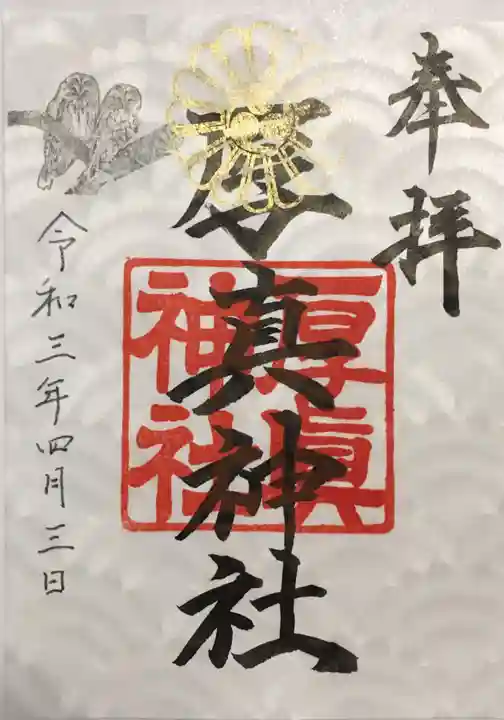 奉拝
厚真神社
厚眞神社
令和三年四月三日